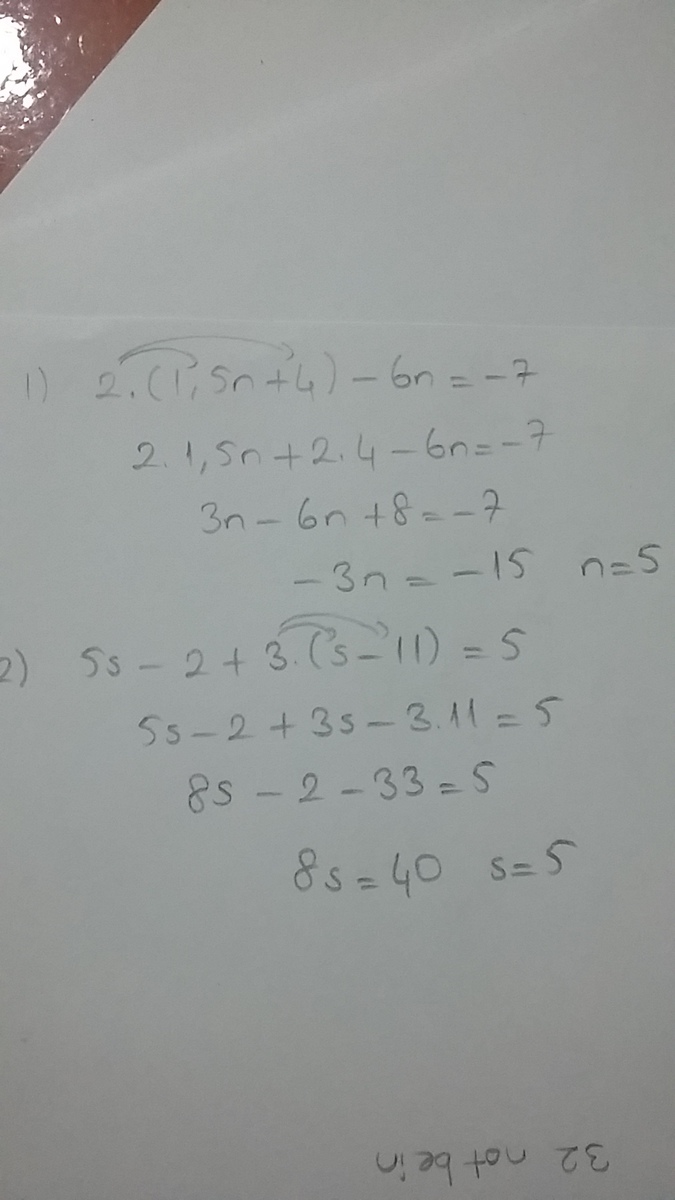 1) 2.(1,5n+4)-6n=-7
2.1,5n+2.4-6n=-7
3n-6n+8=-7
-3n=-15 n=5
2) 5s-2+3.(s-11)=5
5s-2+3s-3.11=5
8s-2-33=5
8s=40 s=5
32 not be in